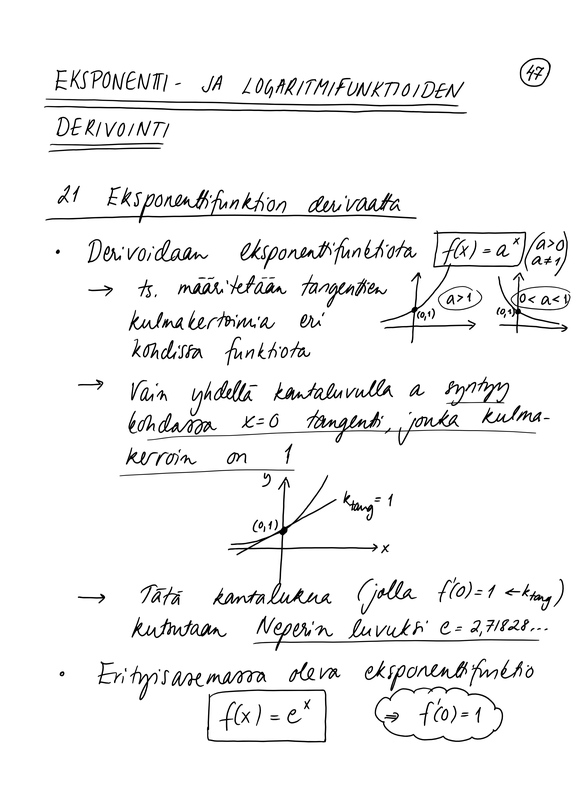 47
EKSPONENTTI- JA LOGARITMIFUNKTIOIDEN
DERIVOINTI
21 Eksponenttifunktion derivaatta
• Derivoidaan eksponenttifunktiota f(x) = a^x (a>0
a≠1)
→ ts. määritetään tangentien
kulmakertoimia eri
kohdissa funktiota
(0,1) a>1
(0,1) 0<a<1
→ Vain yhdellä kantaluvulla a syntyy
kohdassa x=0 tangentti, jonka kulma-
kerroin on 1
y
k_tang = 1
(0,1)
x
→ Tätä kantalukua (jolla f'(0)=1 ← k_tang)
kutsutaan Neperin luvuksi e = 2,71828...
• Erityisasemassa oleva eksponenttifunktio
f(x) = e^x ⇒ f'(0) = 1